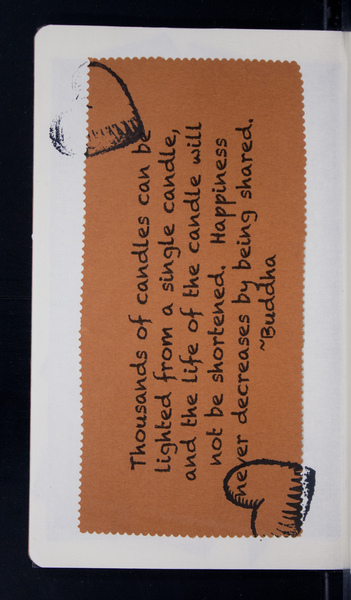 Thousands of candles can be
lighted from a single candle,
and the life of the candle will
not be shortened. Happiness
never decreases by being shared.
~Buddha